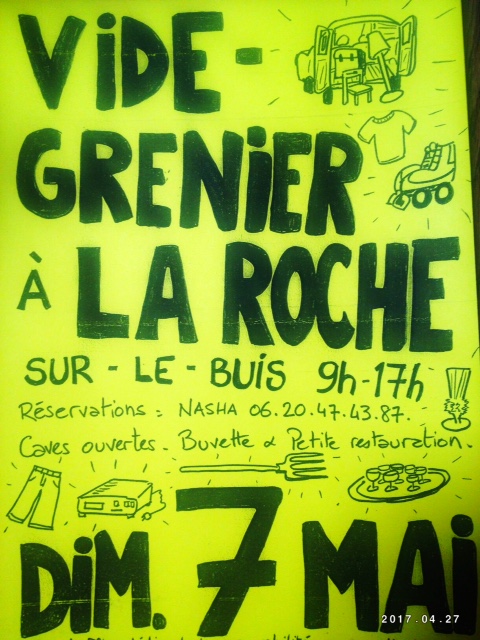 ViDE-
GRENiER
À LA ROCHE
SUR-LE-BUiS 9h-17h
Réservations: NASHA 06.20.47.43.87.
Caves ouvertes. Buvette & Petite restauration.
DiM. 7 MAi
2017.04.27